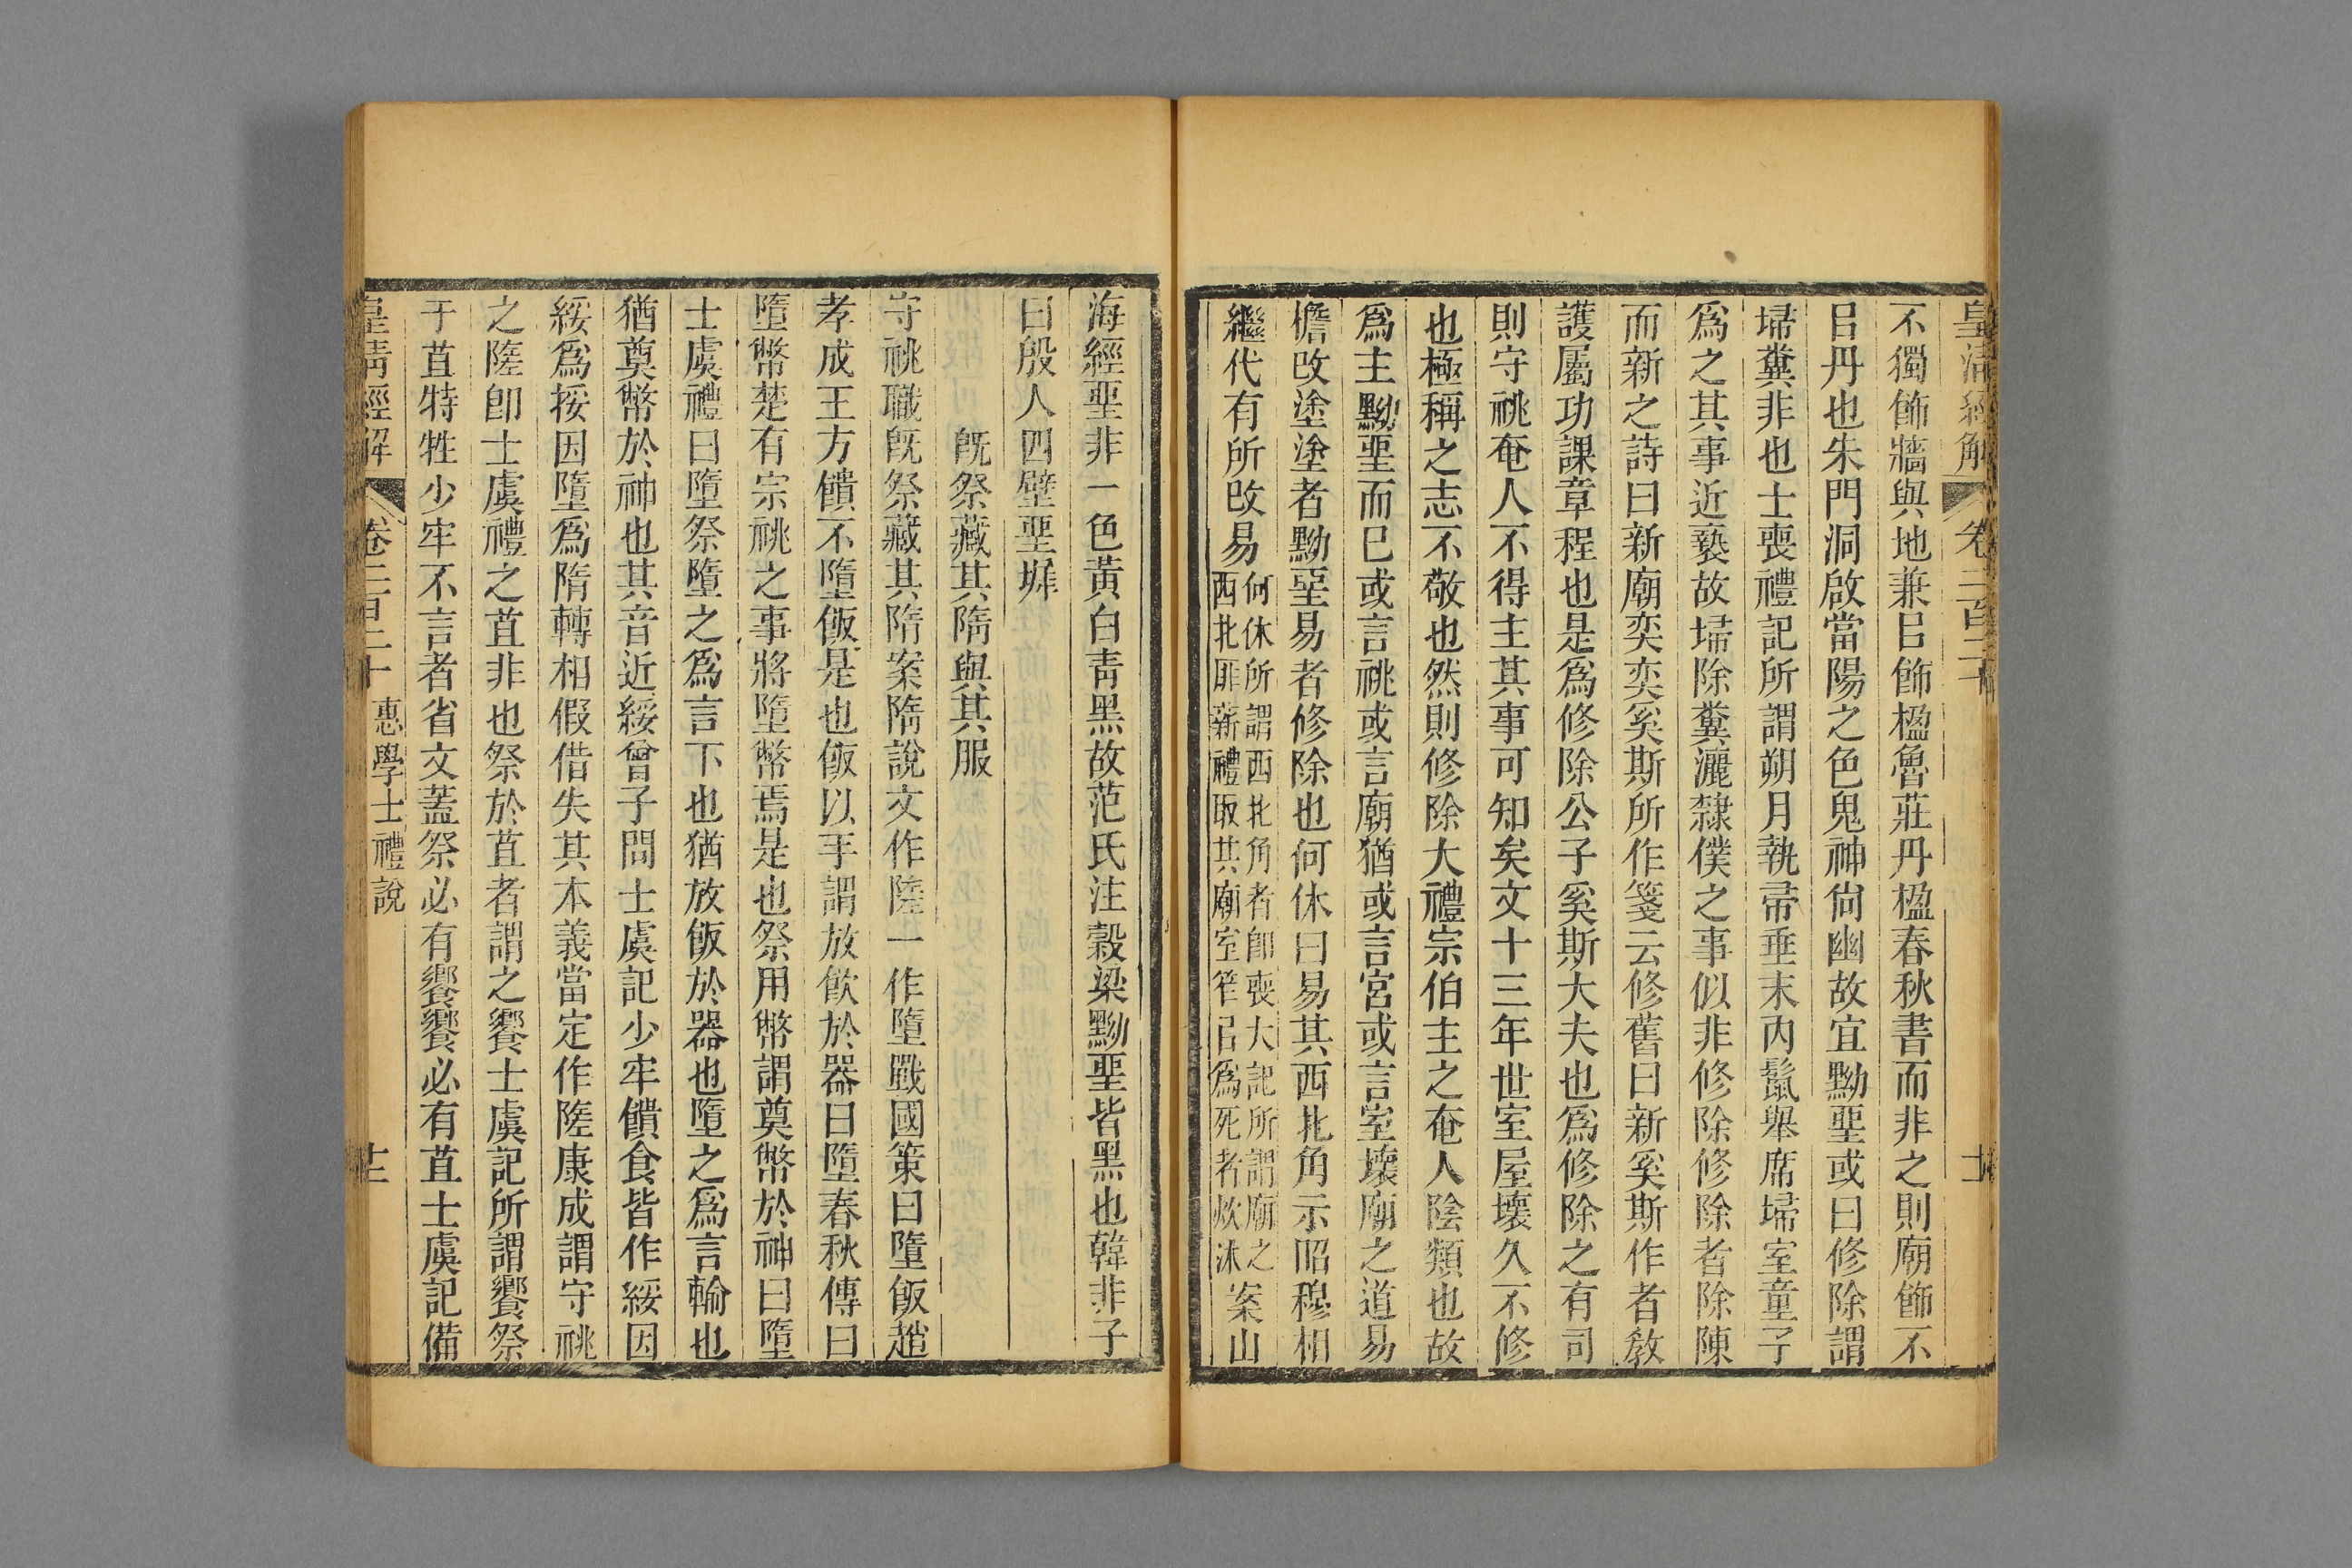 皇清經解 卷二百二十
不獨飾牆與地兼㠯飾楹魯莊丹楹春秋書而非之則廟飾不
㠯丹也朱門洞啟當陽之色鬼神尙幽故宜黝堊或曰修除謂
埽糞非也士喪禮記所謂朔月執帚垂末內鬛舉席埽室童子
爲之其事近褻故埽除糞灑隸僕之事似非修除修除者除陳
而新之詩曰新廟奕奕奚斯所作箋云修舊曰新奚斯作者敎
護屬功課章程也是爲修除公子奚斯大夫也爲修除之有司
則守祧奄人不得主其事可知矣文十三年世室屋壞久不修
也極稱之志不敬也然則修除大禮宗伯主之奄人陰類也故
爲主黝堊而已或言祧或言廟猶或言宮或言室壞廟之道易
檐改塗塗者黝堊易者修除也何休曰易其西北角示昭穆相
繼代有所改易何休所謂西北角者卽喪大記所謂廟之西北厞薪禮取其廟室笮㠯爲死者炊沐案山
海經堊非一色黃白靑黑故范氏注穀梁黝堊皆黑也韓非子
曰殷人四壁堊墀
旣祭藏其隋與其服
守祧職旣祭藏其隋案隋說文作隓一作墮戰國策曰墮飯趙
孝成王方饋不墮飯是也飯以手謂放飮於器曰墮春秋傳曰
墮幣楚有宗祧之事將墮幣焉是也祭用幣謂奠幣於神曰墮
士虞禮曰墮祭墮之爲言下也猶放飯於器也墮之爲言輸也
猶奠幣於神也其音近綏曾子問士虞記少牢饋食皆作綏因
綏爲挼因墮爲隋轉相假借失其本義當定作隓康成謂守祧
之隓卽士虞禮之苴非也祭於苴者謂之饗士虞記所謂饗祭
于苴特牲少牢不言者省文蓋祭必有饗饗必有苴士虞記備
皇淸經解 卷二百二十 惠學士禮說